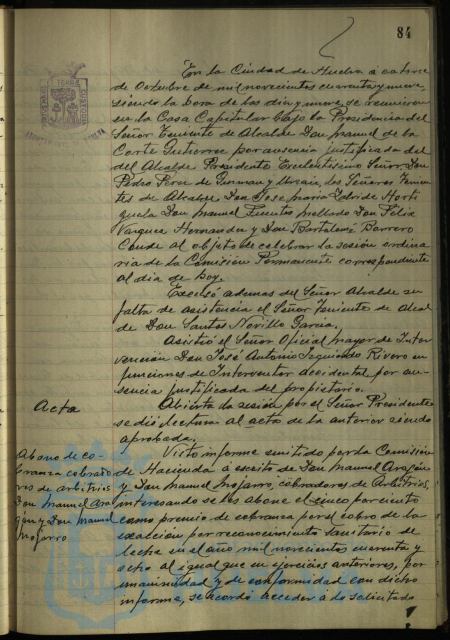 84
En la Ciudad de Huelva a catorce
de Octubre de mil novecientos cuarenta y nueve,
siendo la hora de las diez y nueve, se reunieron
en la Casa Capitular bajo la Presidencia del
Señor Teniente de Alcalde Don Manuel de la
Corte Gutierrez por ausencia justificada del
del Alcalde Presidente Excelentísimo Señor Don
Pedro Perez de Guzman y Urzaiz, los Señores Tenien
tes de Alcalde Don Jose Maria Zalvide Horti
guela Don Manuel Fuentes Mellado Don Félix
Vazquez Hernandez y Don Bartolomé Borrero
Conde al objeto de celebrar la sesión ordina
ria de la Comisión Permanente correspondiente
al dia de hoy.
Excusó ademas del Señor Alcalde su
falta de asistencia el Señor Teniente de Alcal
de Don Santos Novillo Garcia.
Asistió el Señor Oficial mayor de Inter
vención Don José Antonio Izquierdo Rivero en
funciones de Interventor accidental por au-
sencia justificada del propietario.
Acta
Abierta la sesión por el Señor Presidente
se dió lectura al acta de la anterior siendo
aprobada.
Abono de co-
branza cobrado
res de arbitrios
Don Manuel Ara
gón y Don Manuel
Mojarro
Visto informe emitido por la Comisión
de Hacienda á escrito de Don Manuel Aragón
y Don Manuel Mojarro, cobradores de Arbitrios,
interesando se les abone el cinco por ciento
como premio de cobranza por el cobro de la
exacción por reconocimiento sanitario de
leche en el año mil novecientos cuarenta y
ocho al igual que en ejercicios anteriores, por
unanimidad y de conformidad con dicho
informe, se acordó acceder á lo solicitado